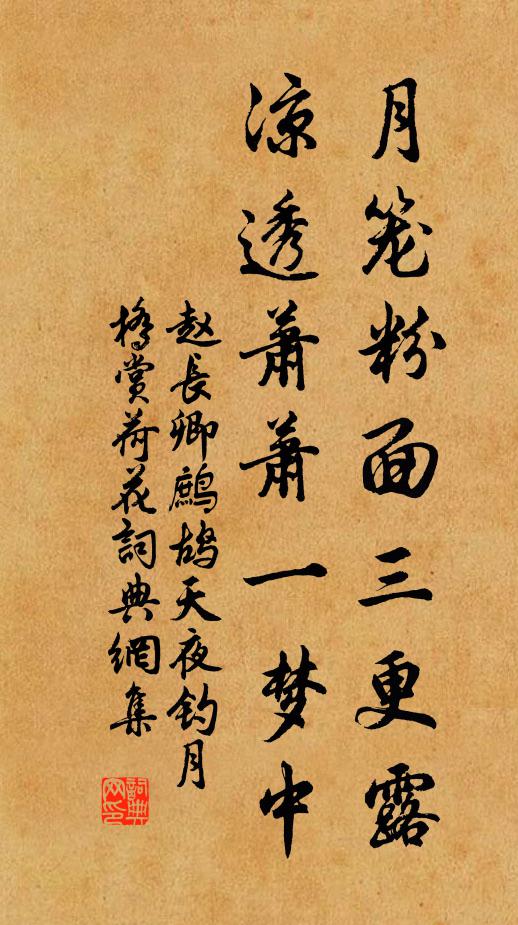 月笼粉面三更露
凉透萧萧一梦中
赵長卿鷓鴣天夜钓月
橋赏荷花詞典網集
詞典
网印